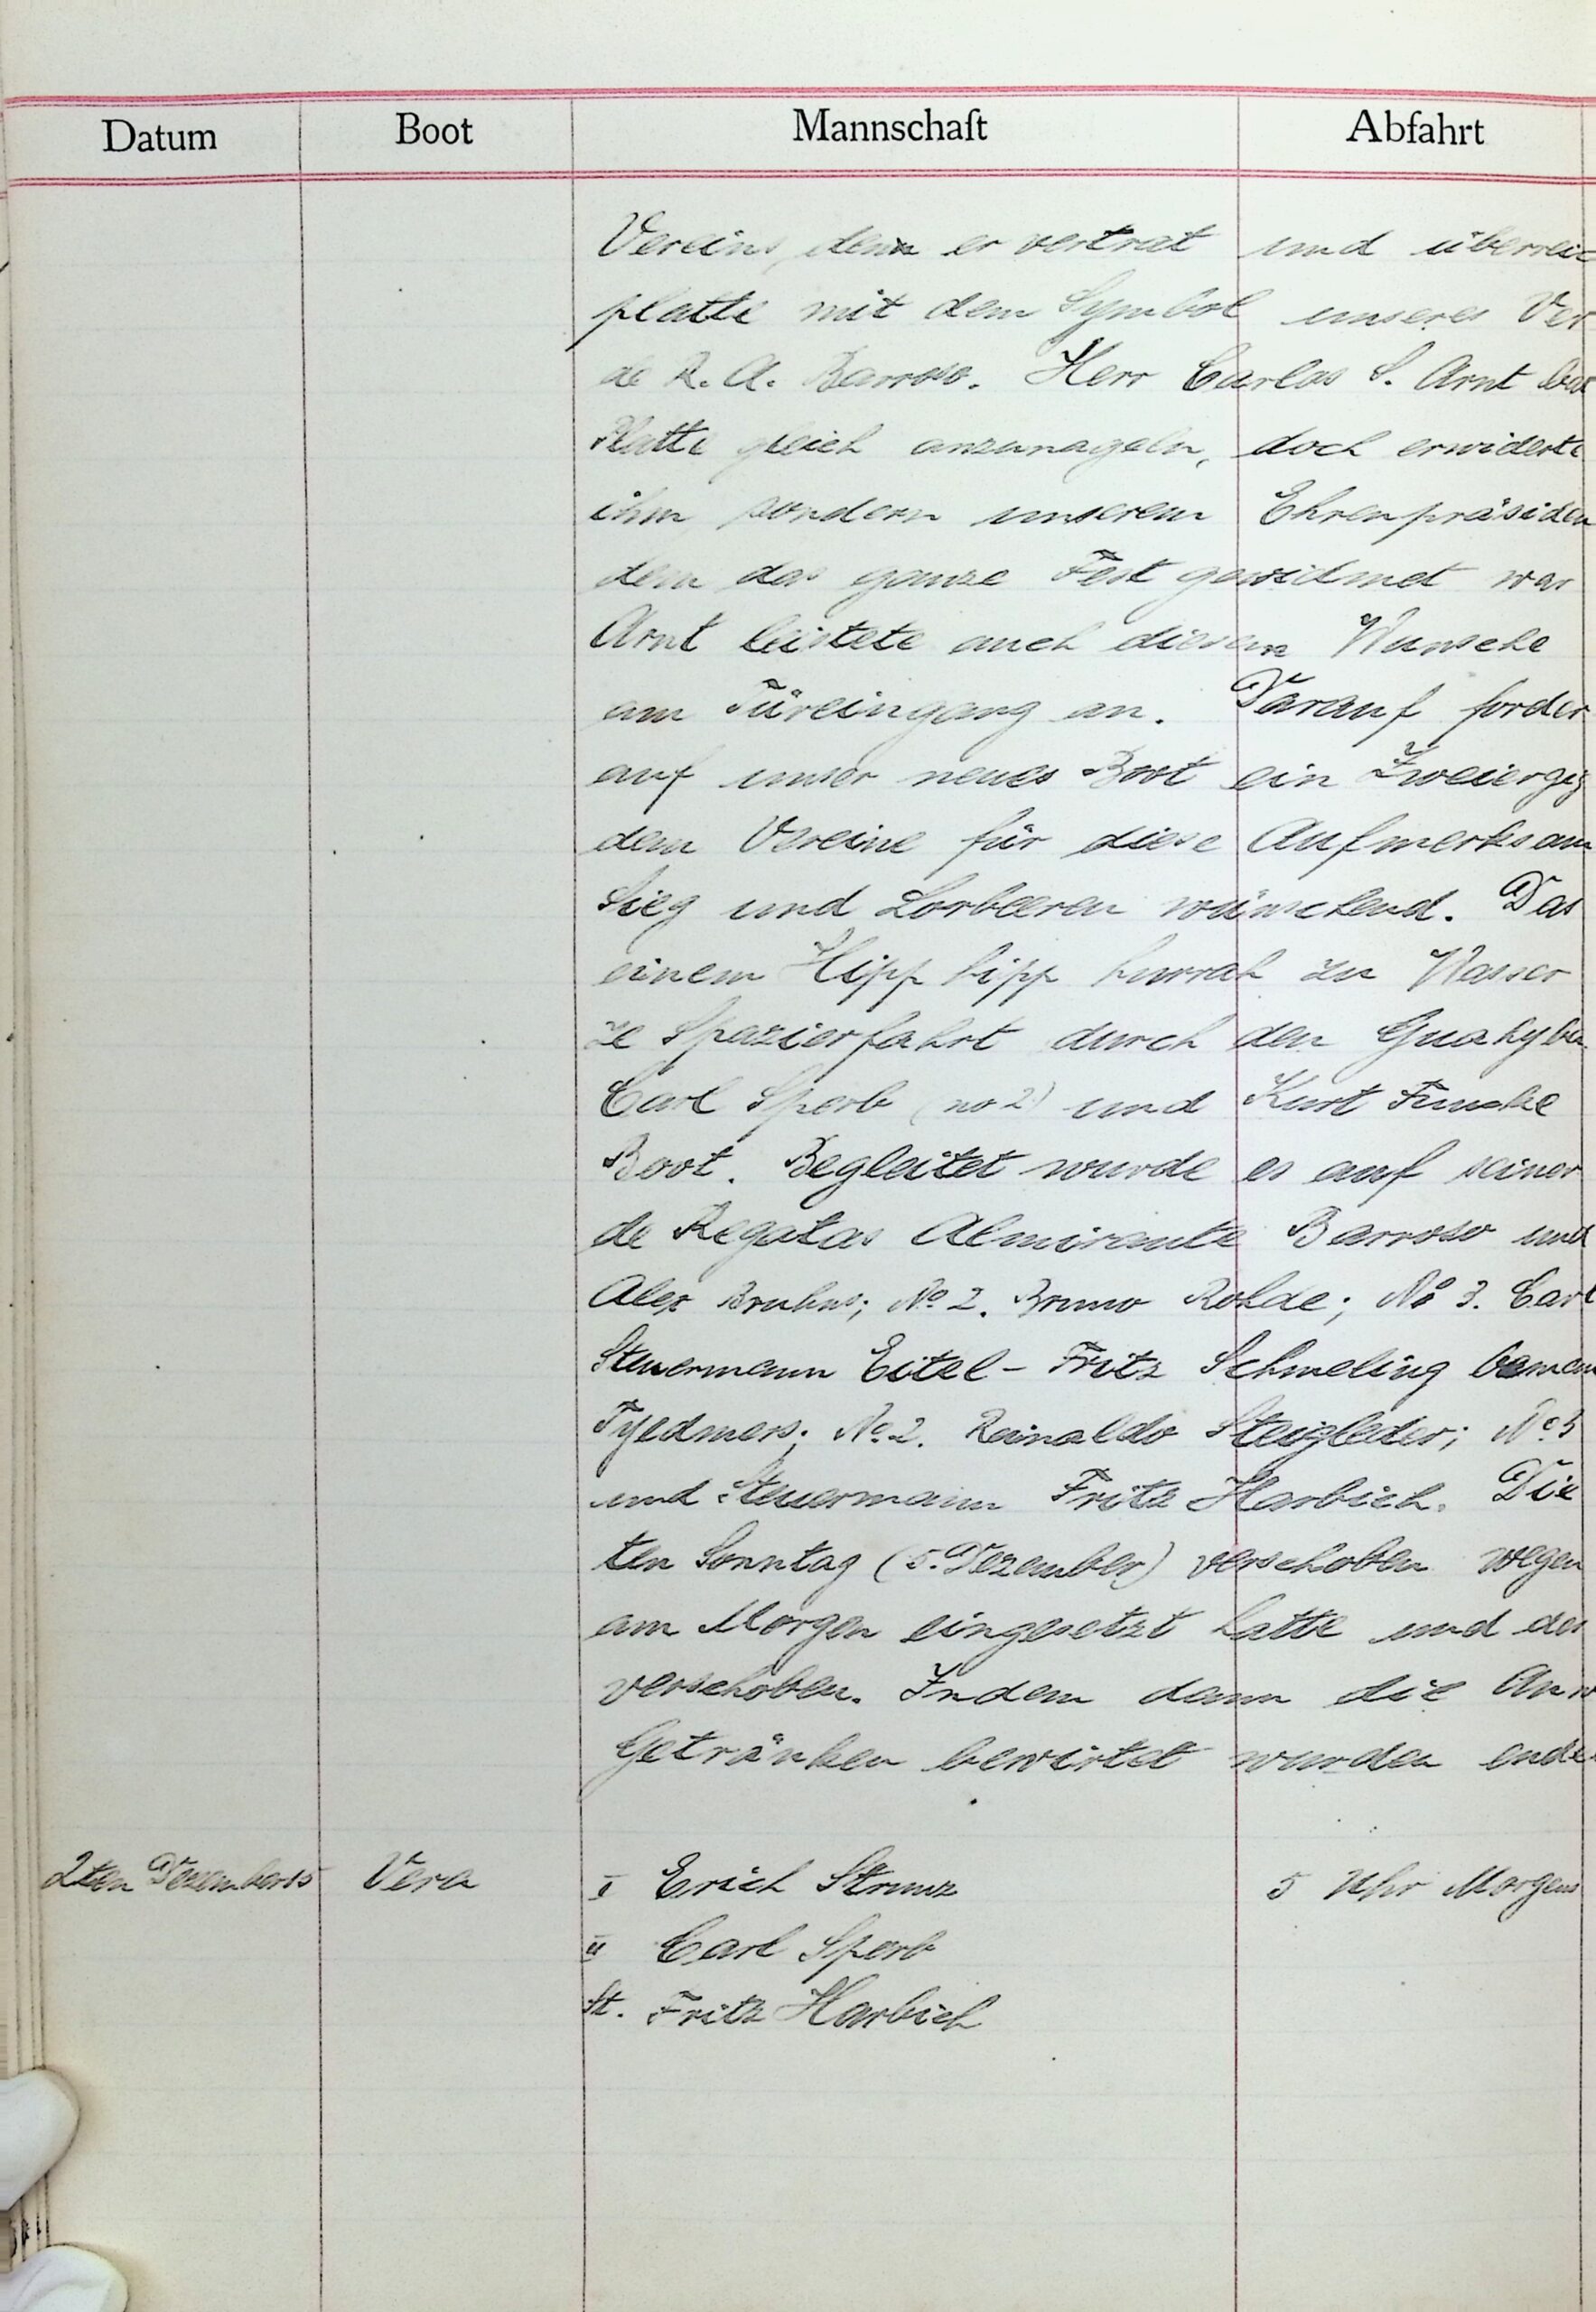 Datum Boot Mannschaft Abfahrt
Vereins, denn er vertrat und überreic
platte mit dem Symbol unseres Ver
de R. A. Barroso. Herr Carlos S. Arnt bat
Platte gleich anzunageln, doch erwiderte
ihm sondern unserem Ehrenpräsiden
dem das ganze Fest gewidmet war
Arnt leistete auch diesem Wunsche
am Türeingang an. Darauf forder
auf unser neues Boot ein Zweiergig
dem Vereine für diese Aufmerksam
Sieg und Lorbeeren wünschend. Das
einem Hipp hipp hurrah zu Wasser
ze Spazierfahrt durch den Guahyba
Carl Sperb (no 2) und Kurt Funcke
Boot. Begleitet wurde es auf seiner
de Regatas Almirante Barroso und
Alex Bruhns; No 2. Bruno Rohde; No 3. Carl
Steuermann Eitel-Fritz Schmeling
Tyedmers; No. 2. Reinaldo Steigleder; No 3
und Steuermann Fritz Harbich. Die
ten Sonntag (5. Dezember) verschoben wegen
am Morgen eingesetzt hatte und der
verschoben. Indem dann die Anw
Getränken bewirtet wurden ende
2ten Dezember Vera I Erich Strunz 5 Uhr Morgens
II Carl Sperb
St. Fritz Harbich